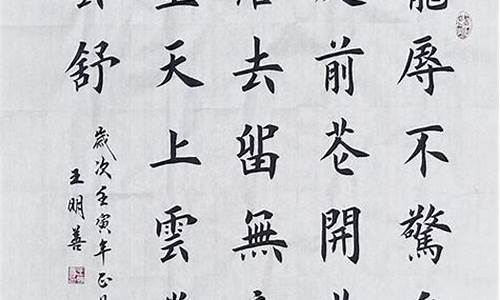 寵辱不驚
前花開
去留無
天上雲
舒
歲次壬寅年正月
王明善